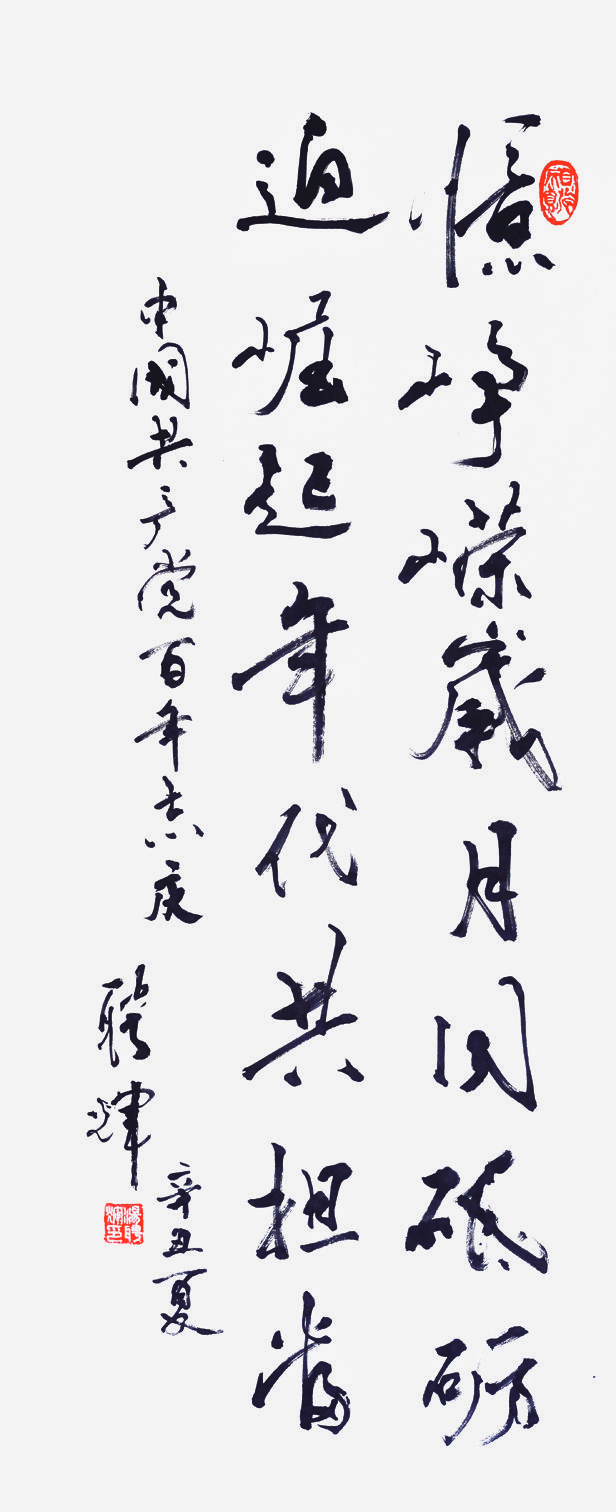 憶峥嵘歲月同砥砺
追崛起年代共担當
中國共产党百年志庆
聘輝
辛丑夏